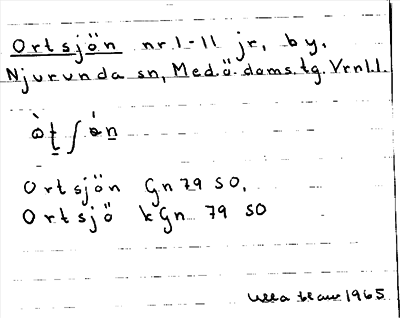 Ortsjön nr 1-11 jr, by,
Njurunda sn, Med.ö. doms.tg. Vrnl.l.
Ortsjön Gn 79 SO,
Ortsjö kGn 79 SO
Ulla 1965